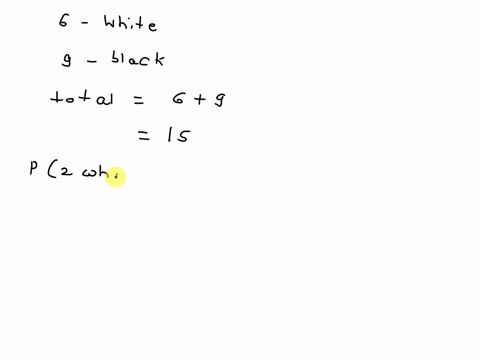 6 - white
9 - black
total = 6 + 9
= 15
P (2 whi